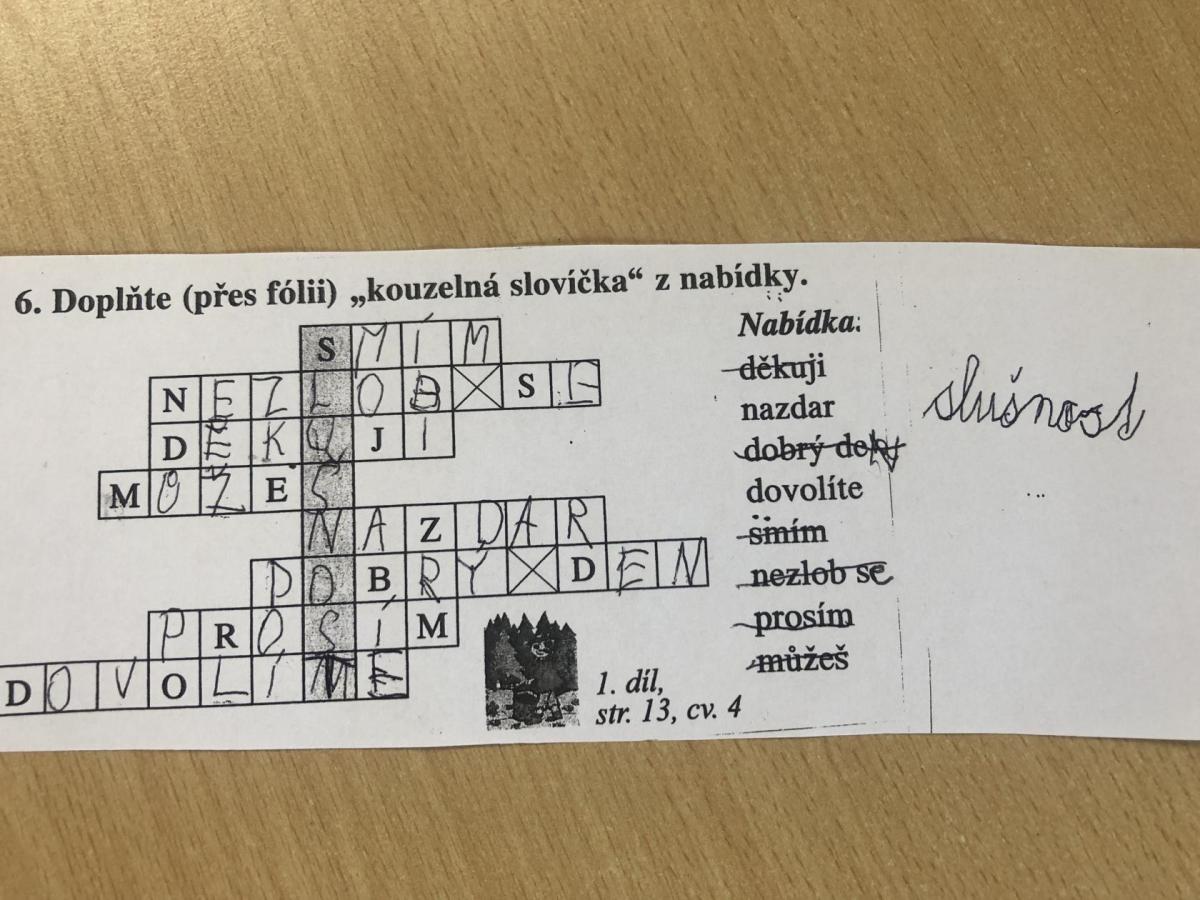 6. Doplňte (přes fólii) „kouzelná slovíčka“ z nabídky.
SMÍM
NEZLOB SE
DĚKUJI
MOZES
NAZDAR
DOBRY DEN
PROSÍM
DOVOLÍNE
Nabídka:
děkuji
nazdar
dobrý den
dovolíte
smím
nezlob se
prosím
můžeš
1. díl,
str. 13, cv. 4
slušnost